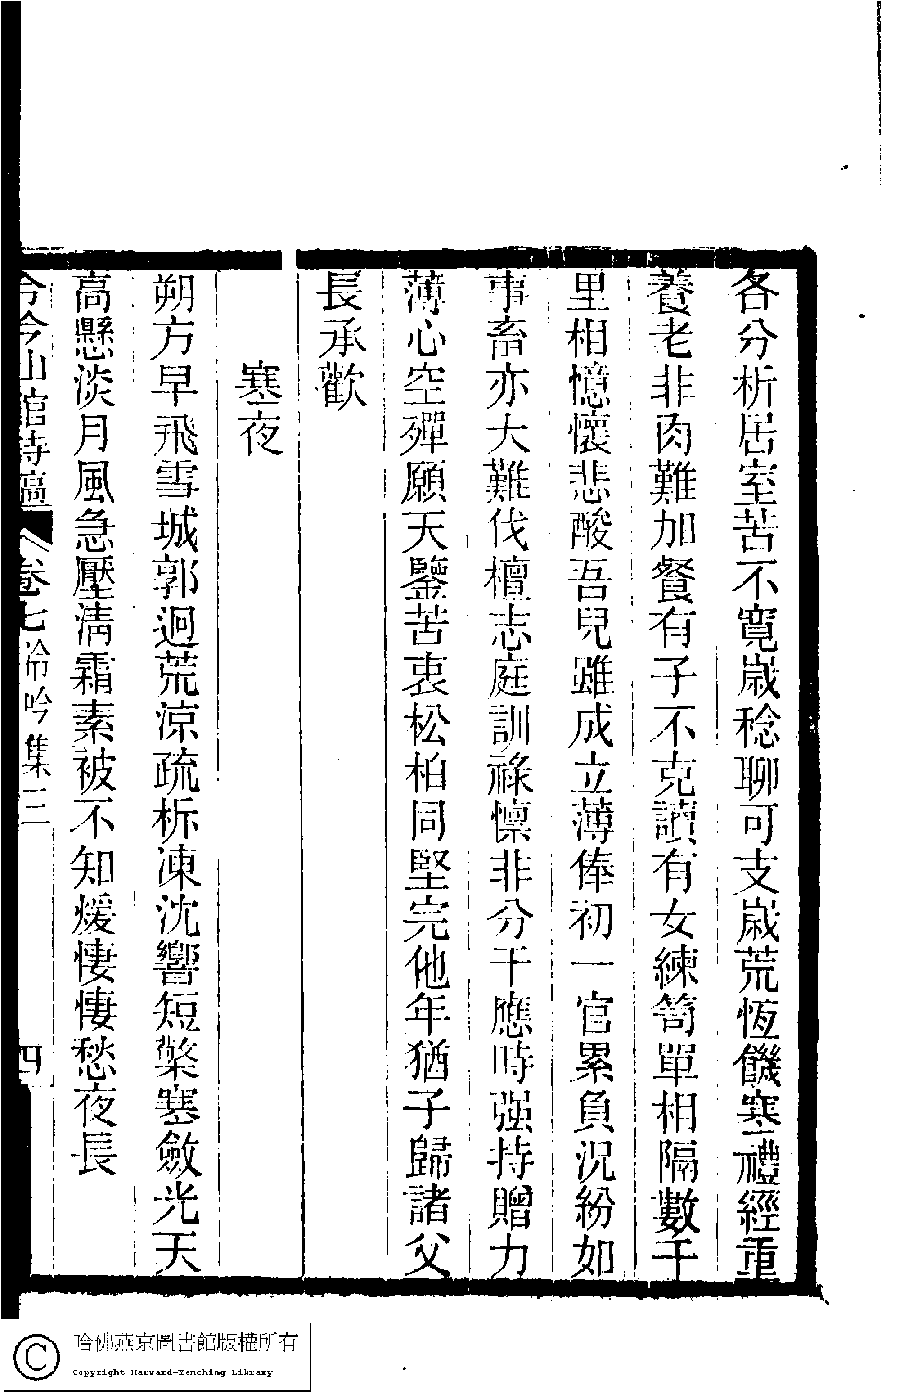 各分析居室苦不寬歲稔聊可支歲荒恆饑寒禮經重
養老非肉難加餐有子不克讀有女練笥單相隔數千
里相憶懷悲酸吾兒雖成立薄俸初一官累負況紛如
事畜亦大難伐檀志庭訓祿懍非分干應時强持贈力
薄心空殫願天鑒苦衷松柏同堅完他年猶子歸諸父
長承歡
寒夜
朔方早飛雪城郭迥荒涼疏柝凍沈響短檠寒斂光天
高懸淡月風急壓淸霜素被不知煖悽悽愁夜長
今今山館詩
卷七
冷吟集三
四
哈佛燕京圖書館版權所有
Copyright Harvard-Yenching Library